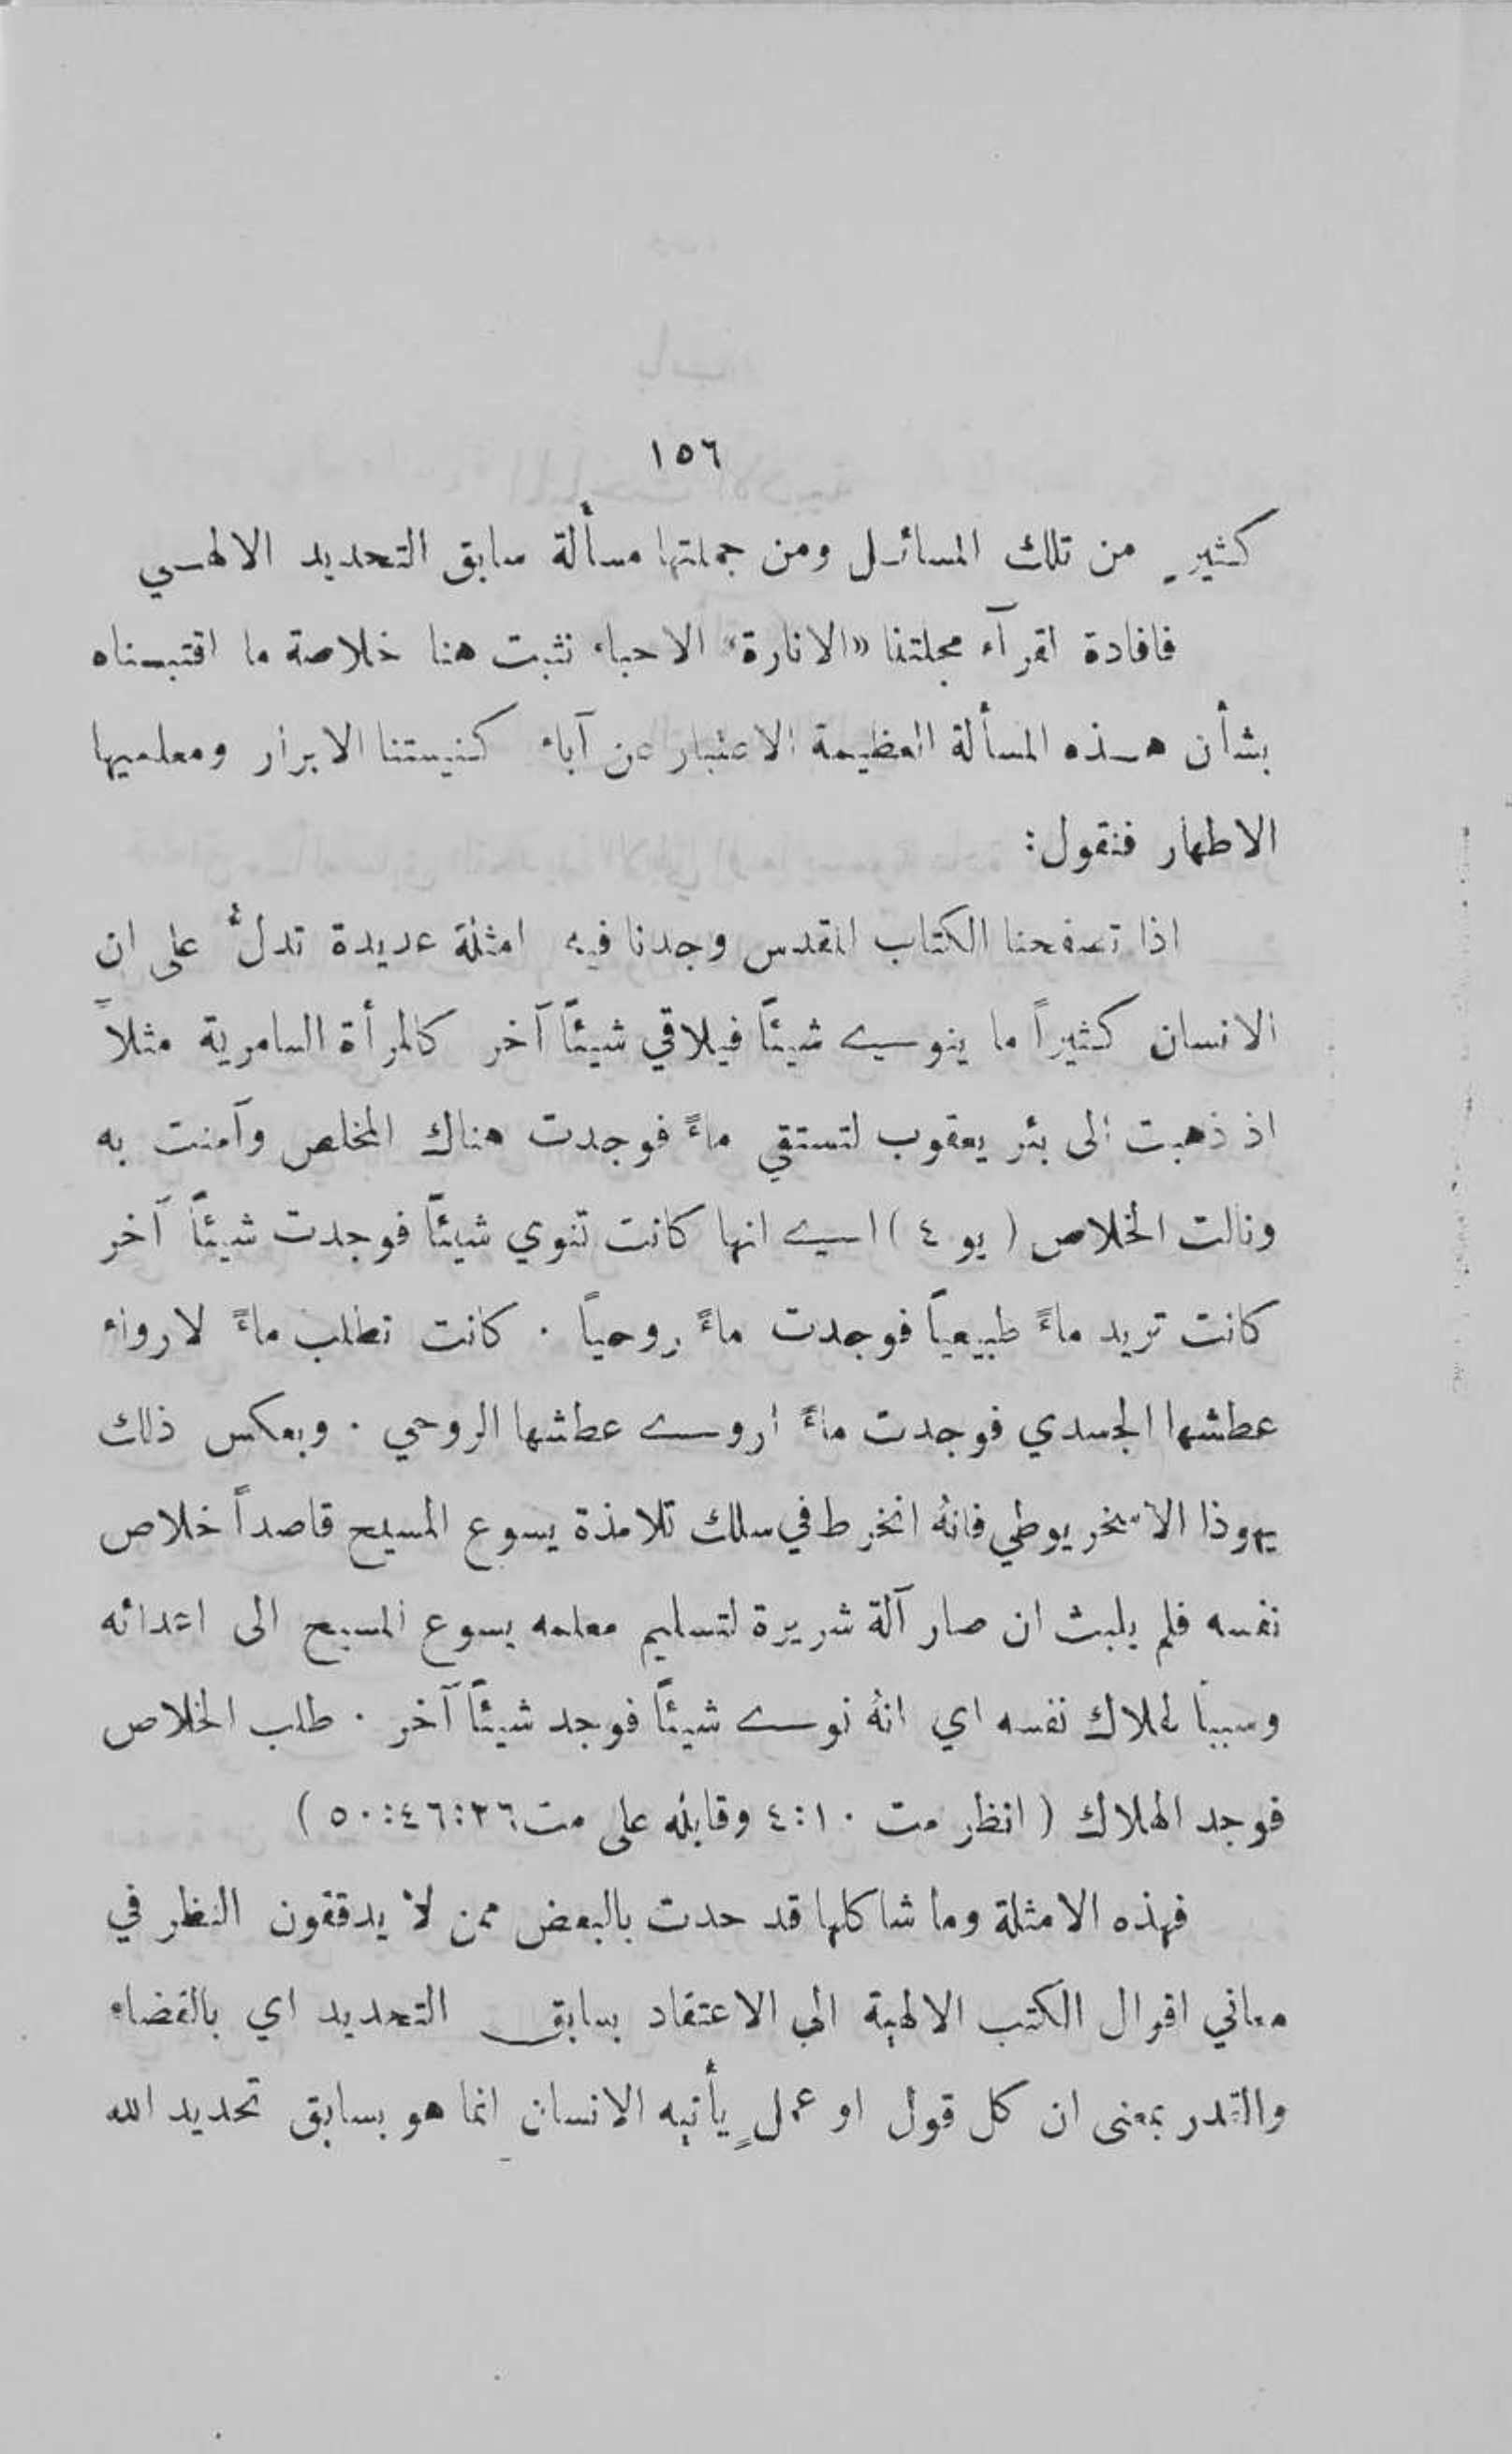 ١٥٦
كثيرٍ من تلك المسائل ومن جملتها مسألة سابق التحديد الالهي
فافادة لقرآء مجلتنا «الانارة» الاحباء نثبت هنا خلاصة ما اقتبسناه
بشأن هذه المسألة العظيمة الاعتبار عن آباء كنيستنا الابرار ومعلميها
الاطهار فنقول:
اذا تصفحنا الكتاب المقدس وجدنا فيه امثلة عديدة تدلُّ على ان
الانسان كثيراً ما ينوي شيئاً فيلاقي شيئاً آخر كالمرأة السامرية مثلاً
اذ ذهبت الى بئر يعقوب لتستقي ماءً فوجدت هناك المخلص وآمنت به
ونالت الخلاص (يو ٤) اي انها كانت تنوي شيئاً فوجدت شيئاً آخر
كانت تريد ماءً طبيعياً فوجدت ماءً روحياً . كانت تطلب ماءً لارواء
عطشها الجسدي فوجدت ماءً اروى عطشها الروحي . وبعكس ذلك
يهوذا الاسخريوطي فانهُ انخرط في سلك تلامذة يسوع المسيح قاصداً خلاص
نفسه فلم يلبث ان صار آلة شريرة لتسليم معلمه يسوع المسيح الى اعدائه
وسبباً لهلاك نفسه اي انهُ نوى شيئاً فوجد شيئاً آخر . طلب الخلاص
فوجد الهلاك (انظر مت ١٠:٤ وقابله على مت ٢٦:٤٦:٥٠)
فهذه الامثلة وما شاكلها قد حدت بالبعض ممن لا يدققون النظر في
معاني اقوال الكتب الالهية الى الاعتقاد بسابق التحديد اي بالقضاء
والقدر بمعنى ان كل قول او عملٍ يأتيه الانسان انما هو بسابق تحديد الله